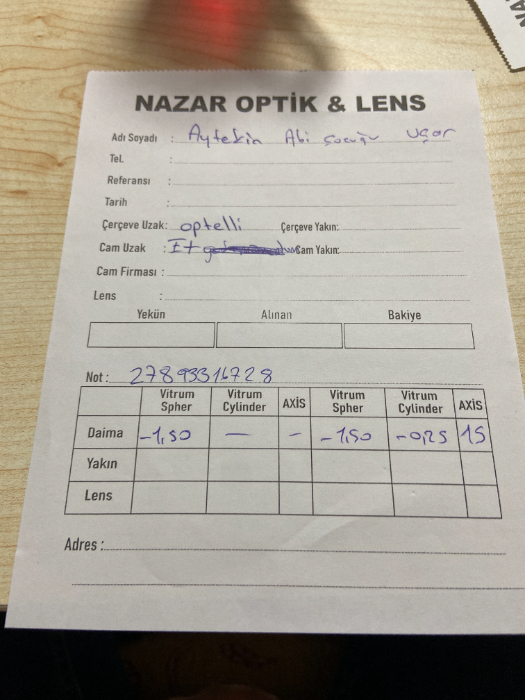 NAZAR OPTİK & LENS
Adı Soyadı : Aytekin Abi çocuğu uçar
Tel. :
Referansı :
Tarih :
Çerçeve Uzak: optelli Çerçeve Yakın:
Cam Uzak : It Cam Yakın:
Cam Firması :
Lens :
Yekün Alınan Bakiye
Not : 27893316728
Vitrum Spher Vitrum Cylinder AXİS Vitrum Spher Vitrum Cylinder AXİS
Daima -1,50 — - -1,50 -0,25 15
Yakın
Lens
Adres :